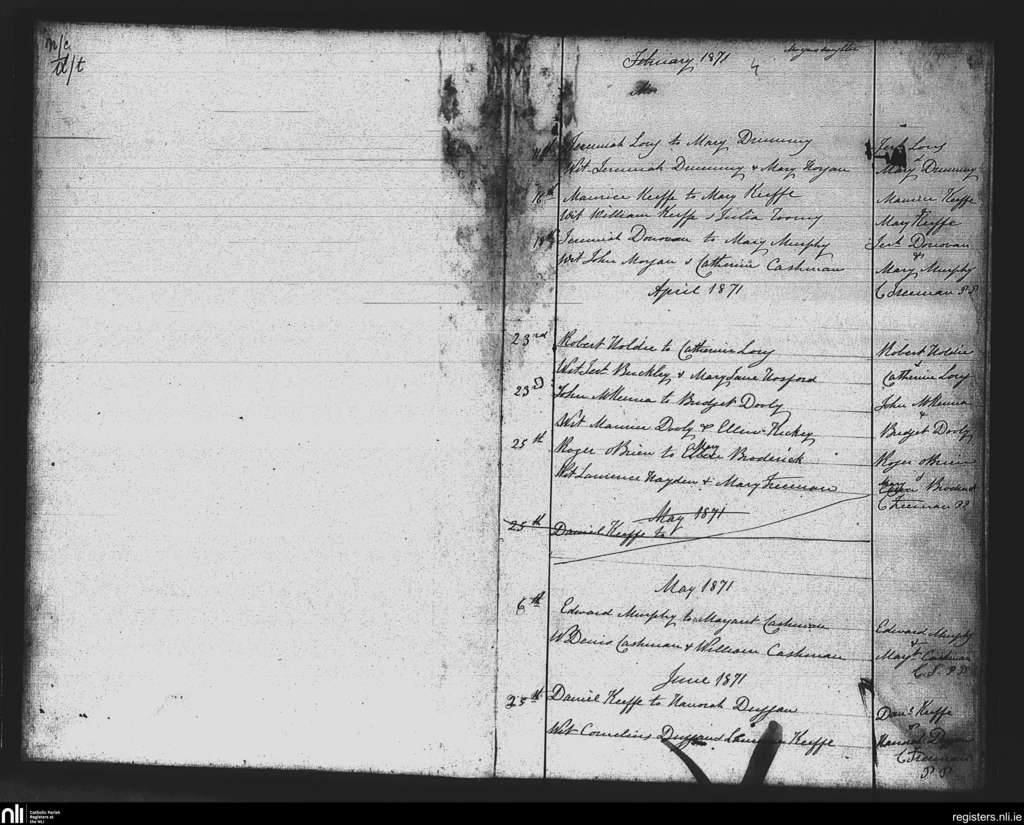 n/c
d/t
February 1871
Jeremiah Long to Mary Dummy
Jerh Long
&
Wit Jeremiah Dummy & Mary Horgan
Mary Dummy
18th Maurice Keeffe to Mary Keeffe
Maurice Keeffe
&
Wit William Keeffe & Julia Toomy
Mary Keeffe
18th Jeremiah Donovan to Mary Murphy
Jerh Donovan
&
Wit John Morgan & Catherine Cashman
Mary Murphy
April 1871
C Freeman P.P.
23rd Robert Holdie to Catherine Long
Robert Holdie
&
Wit Buckley & Mary Jane Hosford
Catherine Long
23rd John McKenna to Bridget Dooly
John McKenna
&
Wit Maurice Dooly & Ellen Hickey
Bridget Dooly
25th Roger OBrien to Mary Broderick
Roger OBrien
&
Wit Laurence Hayden & Mary Freeman
Mary Broderick
C Freeman PP.
May 1871
25th Daniel Keeffe to
May 1871
6th Edward Murphy to Margaret Cashman
Edward Murphy
&
W Denis Cashman & William Cashman
Margt Cashman
C.F. P.P.
June 1871
25th Daniel Keeffe to Hannah Duggan
Danl Keeffe
&
Wit Cornelius Duggan & Keeffe
Hannah
C Freeman
P.P.
nli
Catholic Parish
Registers at
the NLI
registers.nli.ie